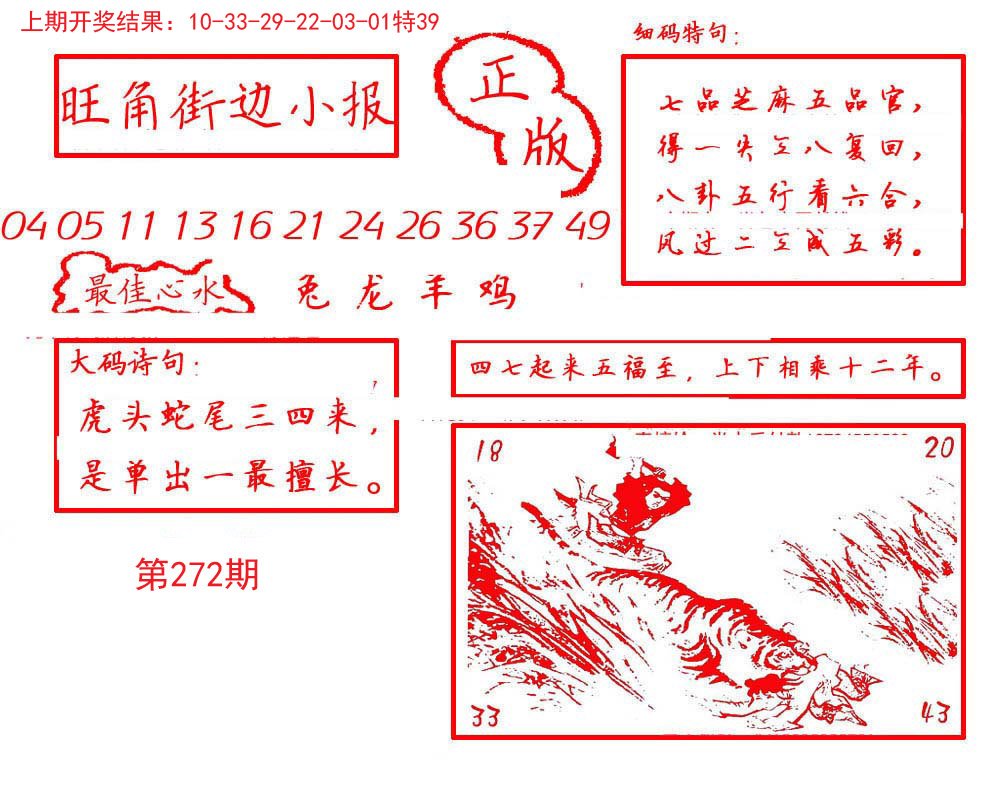 上期开奖结果：10-33-29-22-03-01特39
旺角街边小报
正版
细码特句：
七品芝麻五品官，
得一失二八复回，
八卦五行看六合，
风过二二成五彩。
04 05 11 13 16 21 24 26 36 37 49
最佳心水
兔龙羊鸡
大码诗句：
虎头蛇尾三四来，
是单出一最擅长。
四七起来五福至，上下相乘十二年。
第272期
18
20
33
43